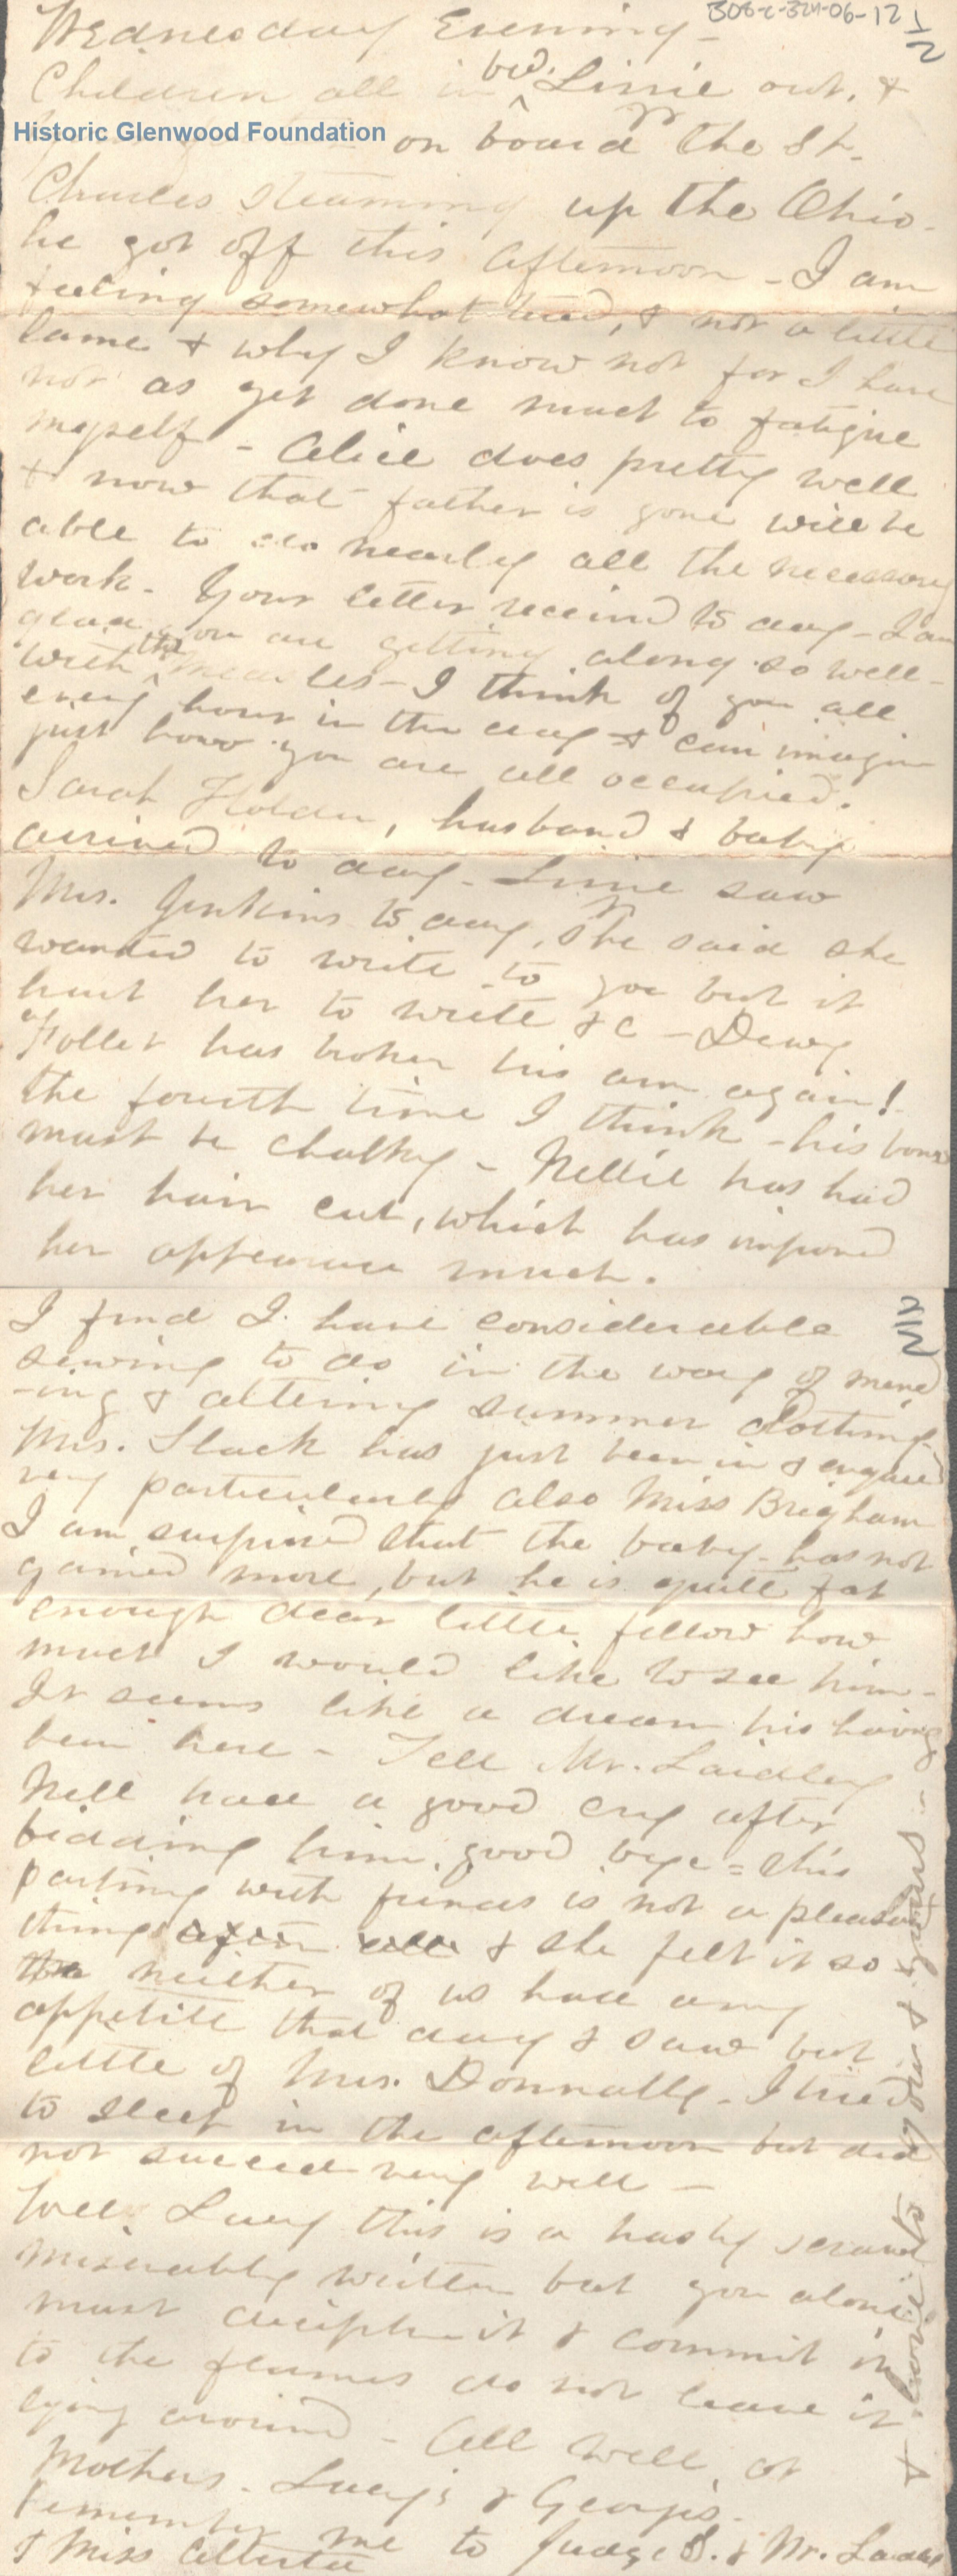 308-c-324-06-12 1/2
Wednesday Evening -
Children all in bed. Linie out, &
Historic Glenwood Foundation
on board the St.
Charles steaming up the Ohio -
he got off this afternoon - I am
feeling somewhat tired, & not a little
lame & why I know not for I have
not as yet done much to fatigue
myself - Alice does pretty well
& now that father is gone will be
able to do nearly all the necessary
work. Your letter received to day - I am
glad you are getting along so well -
with the measles - I think of you all
every hour in the day & can imagine
just how you are all occupied.
Sarah Holden, husband & baby
arrived to day - Linie saw
Mrs. Jenkins to day, She said she
wanted to write to you but it
hurt her to write &c - Dewy
Follet has broken his arm again!
the fourth time I think - his bones
must be chalky - Nellie has had
her hair cut, which has improved
her appearance much.
2/2
I find I have considerable
sewing to do in the way of mend
-ing & altering summer clothing -
Mrs. Slack has just been in & enquired
very particularly also Miss Brigham
I am surprised that the baby has not
gained more, but he is quite fat
enough dear little fellow how
much I would like to see him -
It seems like a dream his having
been here - Tell Mr. Laidley
Nell had a good cry after
bidding him good bye = this
parting with friends is not a pleasant
thing after all & she felt it so
neither of us had any
appetite that day & saw but
little of Mrs. Donnally - I tried
to sleep in the afternoon but did
not succeed very well -
Well Lucy this is a hasty scrawl
miserably written but you alone
must decipher it & commit it
to the flames do not leave it
lying around - All well at
Mothers - Lucy's & George's -
Remember me to Judge S. & Mr. Laidley
& Miss Alberta
& love to you & yours